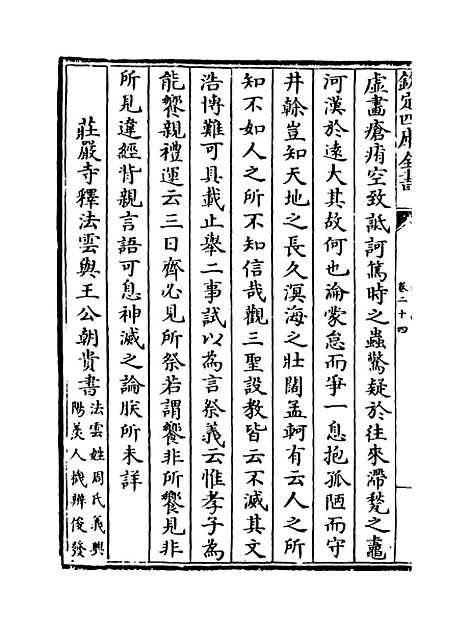 欽定四庫全書
卷二十四
虛畫瘡痏空致詆訶篤時之蟲驚疑於往來滯甃之鼃
河漢於遠大其故何也論蒙怠而爭一息抱孤陋而守
井榦豈知天地之長久溟海之壯闊孟軻有云人之所
知不如人之所不知信哉觀三聖設教皆云不滅其文
浩博難可具載止舉二事試以為言祭義云惟孝子為
能饗親禮運云三日齊必見所祭若謂饗非所饗見非
所見違經背親言語可息神滅之論朕所未詳
莊嚴寺釋法雲與王公朝貴書
法雲姓周氏義興
陽羨人機辨俊發